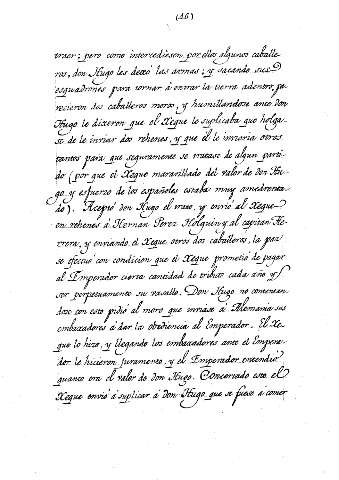 (46)
traer; pero como intercediessen por ellos algunos caballe-
ros, don Hugo les dexó las armas; y sacando sus
esquadrones para tornar á entrar la tierra adentro, pa-
recieron seis caballeros moros, y humillandose ante don
Hugo le dixeron que el Xeque le suplicaba que holga-
se de le inviar dos rehenes, y que él le inviaria otros
tantos para que seguramente se tratase de algun parti-
do (por que el Xeque maravillado del valor de don Hu-
go, y esfuerzo de los españoles estaba muy amedrenta-
do). Aceptó don Hugo el trato, y envió al Xeque
en rehenes á Hernan Perez Holguin y al capitan He-
rrera, y enviando el Xeque otros dos caballeros, la paz
se efectuó con condicion que el Xeque prometió de pagar
al Emperador cierta cantidad de tributo cada año y
ser perpetuamente su vasallo. Don Hugo no contentan-
dose con esto pidió al moro que enviase á Alemania sus
embaxadores á dar la obediencia al Emperador. El Xe-
que lo hizo, y llegando los embaxadores ante el Empera-
dor le hicieron juramento, y el Emperador entendió
quanto era el valor de don Hugo. Concertado esto el
Xeque envió á suplicar á don Hugo que se fuese á comer